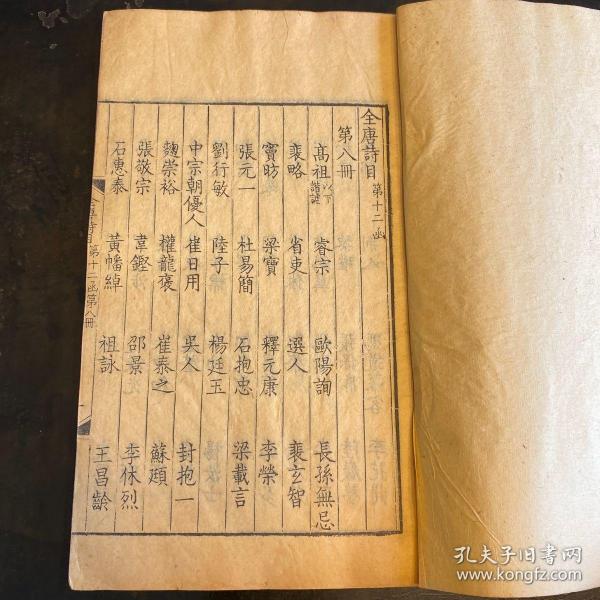 全唐詩目 第十二函
第八冊
高祖 以下諧謔 睿宗 歐陽詢 長孫無忌
裴略 省吏 選人 裴玄智
竇昉 梁寶 釋元康 李榮
張元一 杜易簡 石抱忠 梁載言
劉行敏 陸子 楊廷玉
中宗朝優人 崔日用 吳人 封抱一
麴崇裕 權龍褒 崔泰之 蘇頲
張敬宗 韋鏗 邵景 李休烈
石惠泰 黃幡綽 祖詠 王昌齡
全唐詩目 第十二函第八冊
孔夫子旧书网
www.kongfz.com